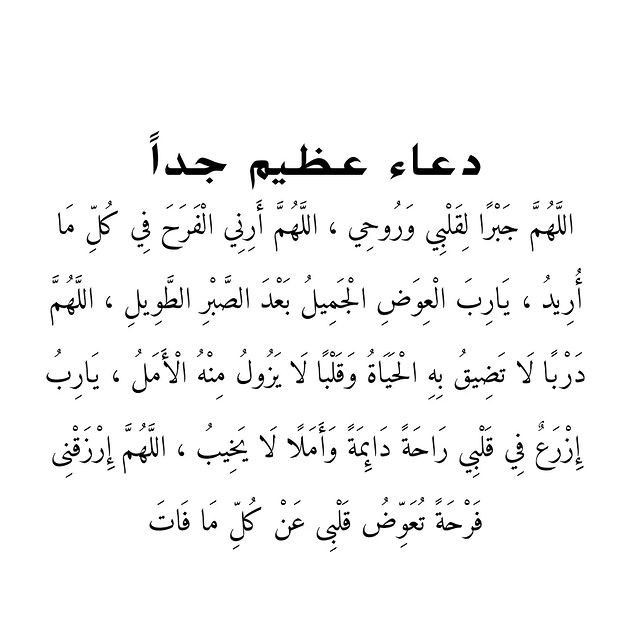 دعاء عظيم جداً
اللَّهُمَّ جَبْرًا لِقَلْبِي وَرُوحِي ، اللَّهُمَّ أَرِنِي الْفَرَحَ فِي كُلِّ مَا
أُرِيدُ ، يَارِبَ الْعِوَضِ الْجَمِيلُ بَعْدَ الصَّبْرِ الطَّوِيلِ ، اللَّهُمَّ
دَرْبًا لَا تَضِيقُ بِهِ الْحَيَاةُ وَقَلْبًا لَا يَزُولُ مِنْهُ الْأَمَلُ ، يَارِبُ
إِزْرَعٌ فِي قَلْبِي رَاحَةً دَائِمَةً وَأَمَلًا لَا يَخِيبُ ، اللَّهُمَّ إِرْزَقْنِى
فَرْحَةً تُعَوِّضُ قَلْبِى عَنْ كُلِّ مَا فَاتَ